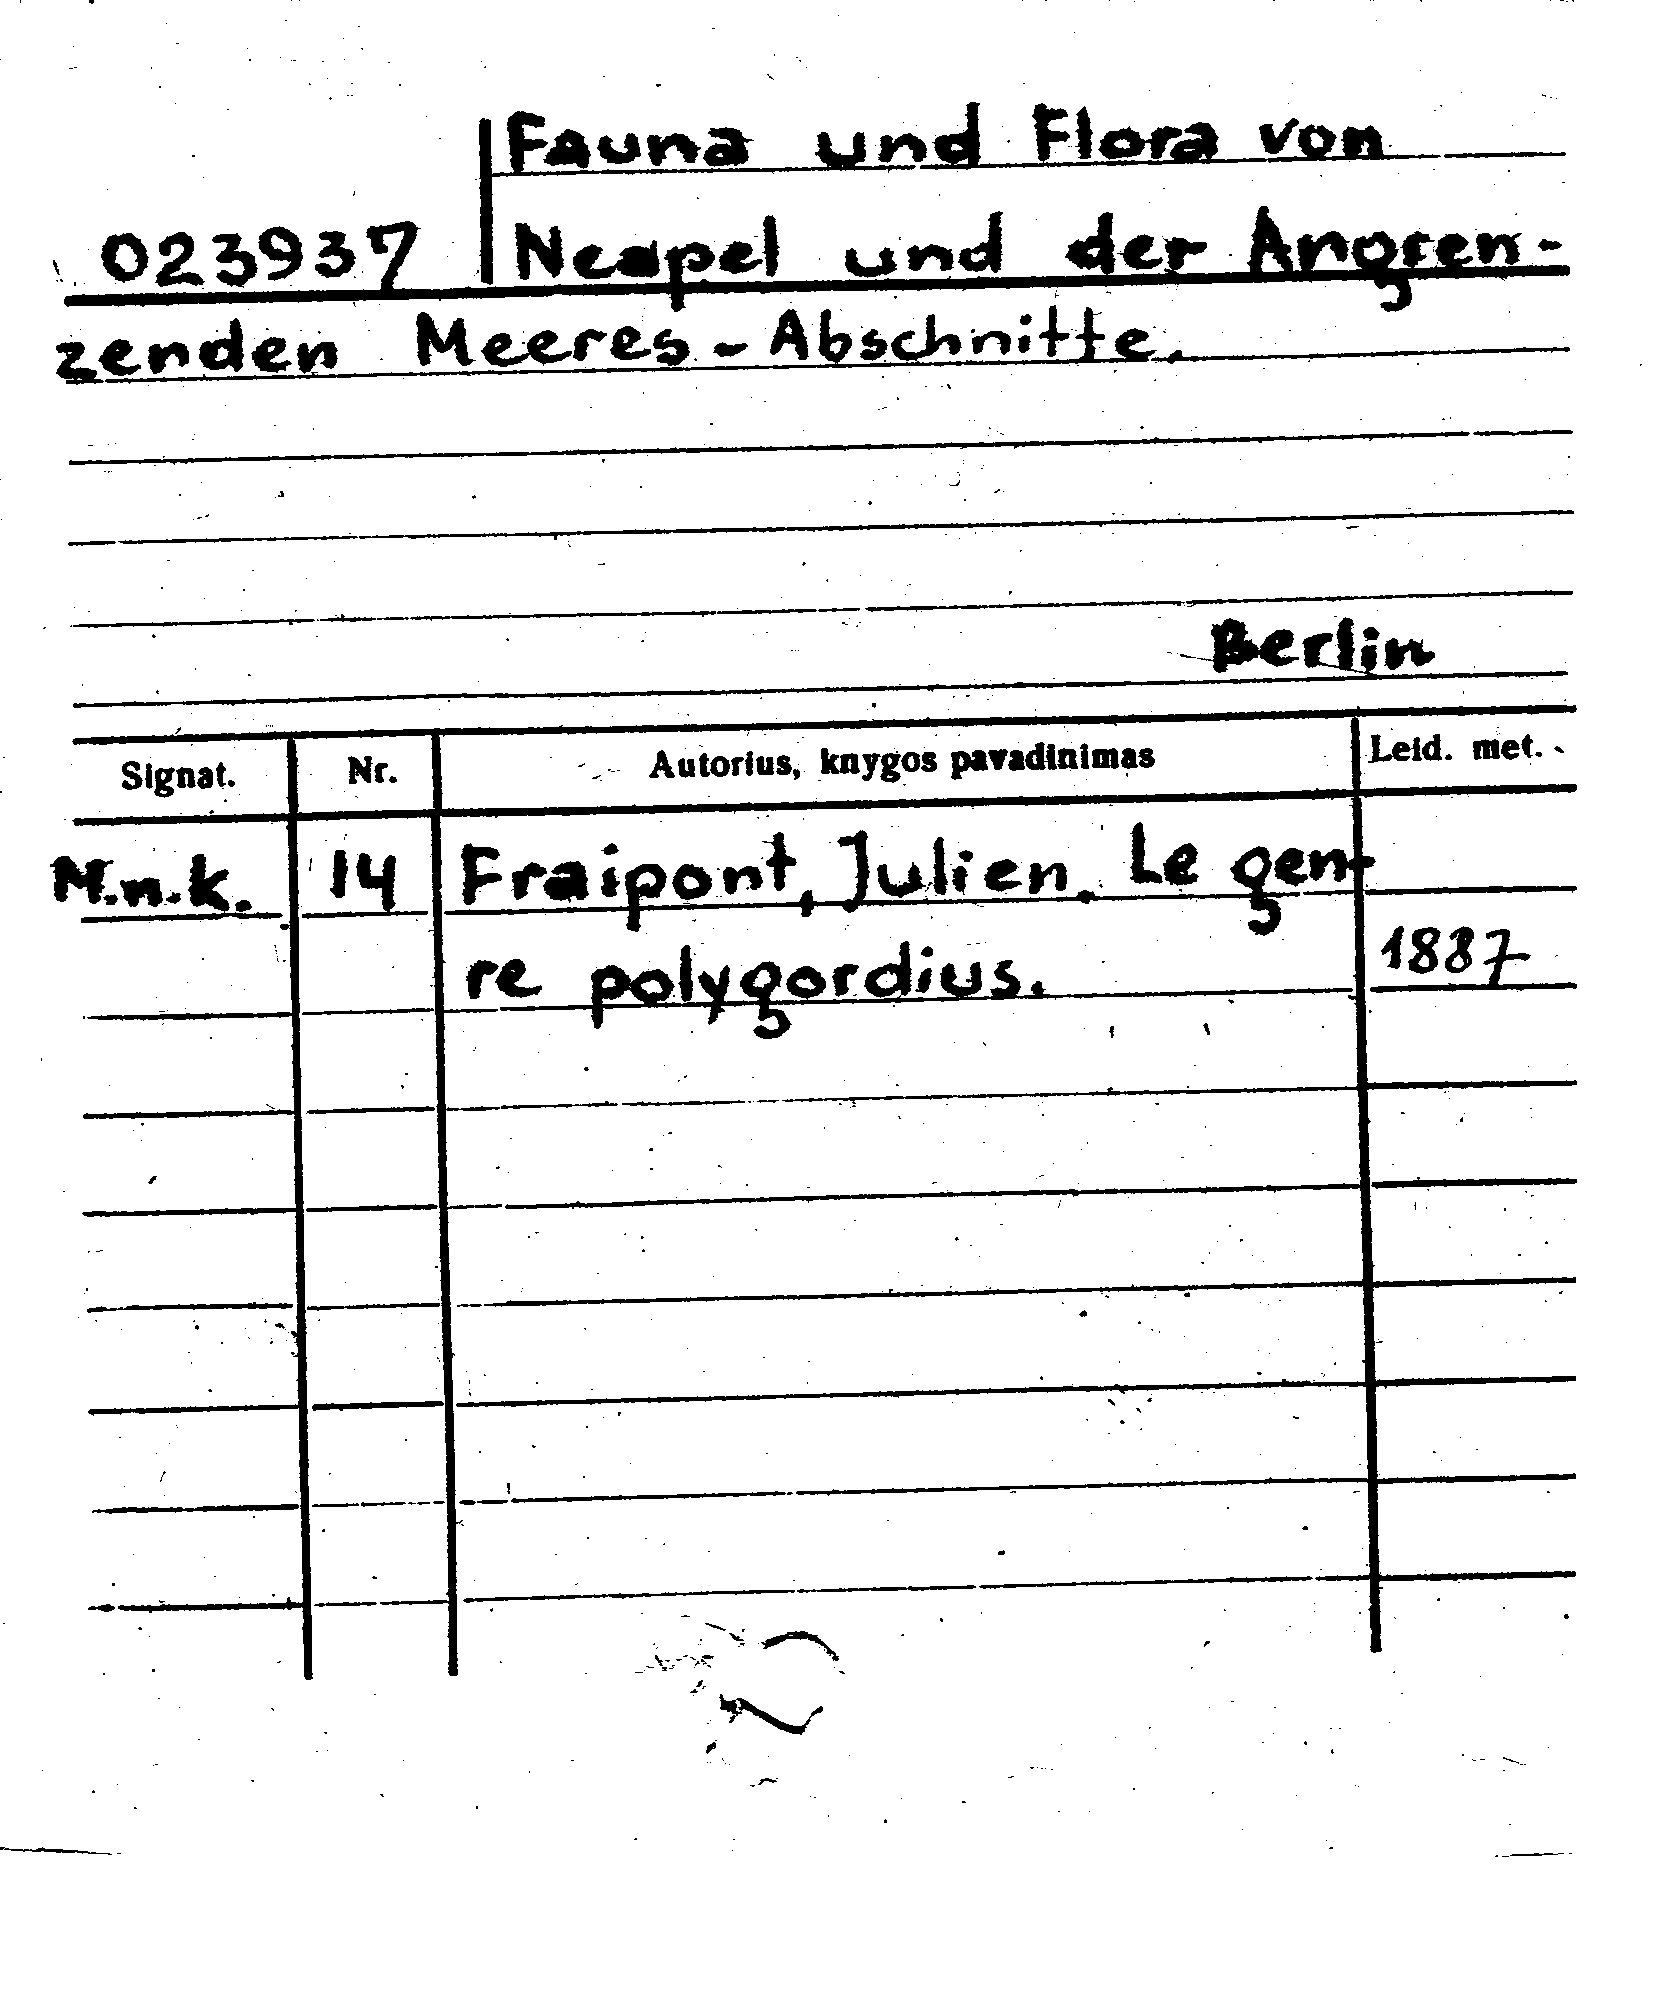 Fauna und Flora von
023937 Neapel und der Angren-
zenden Meeres-Abschnitte.
Berlin
Signat. Nr. Autorius, knygos pavadinimas Leid. met.
M.n.k. 14 Fraipont, Julien. Le gen-
re polygordius. 1887